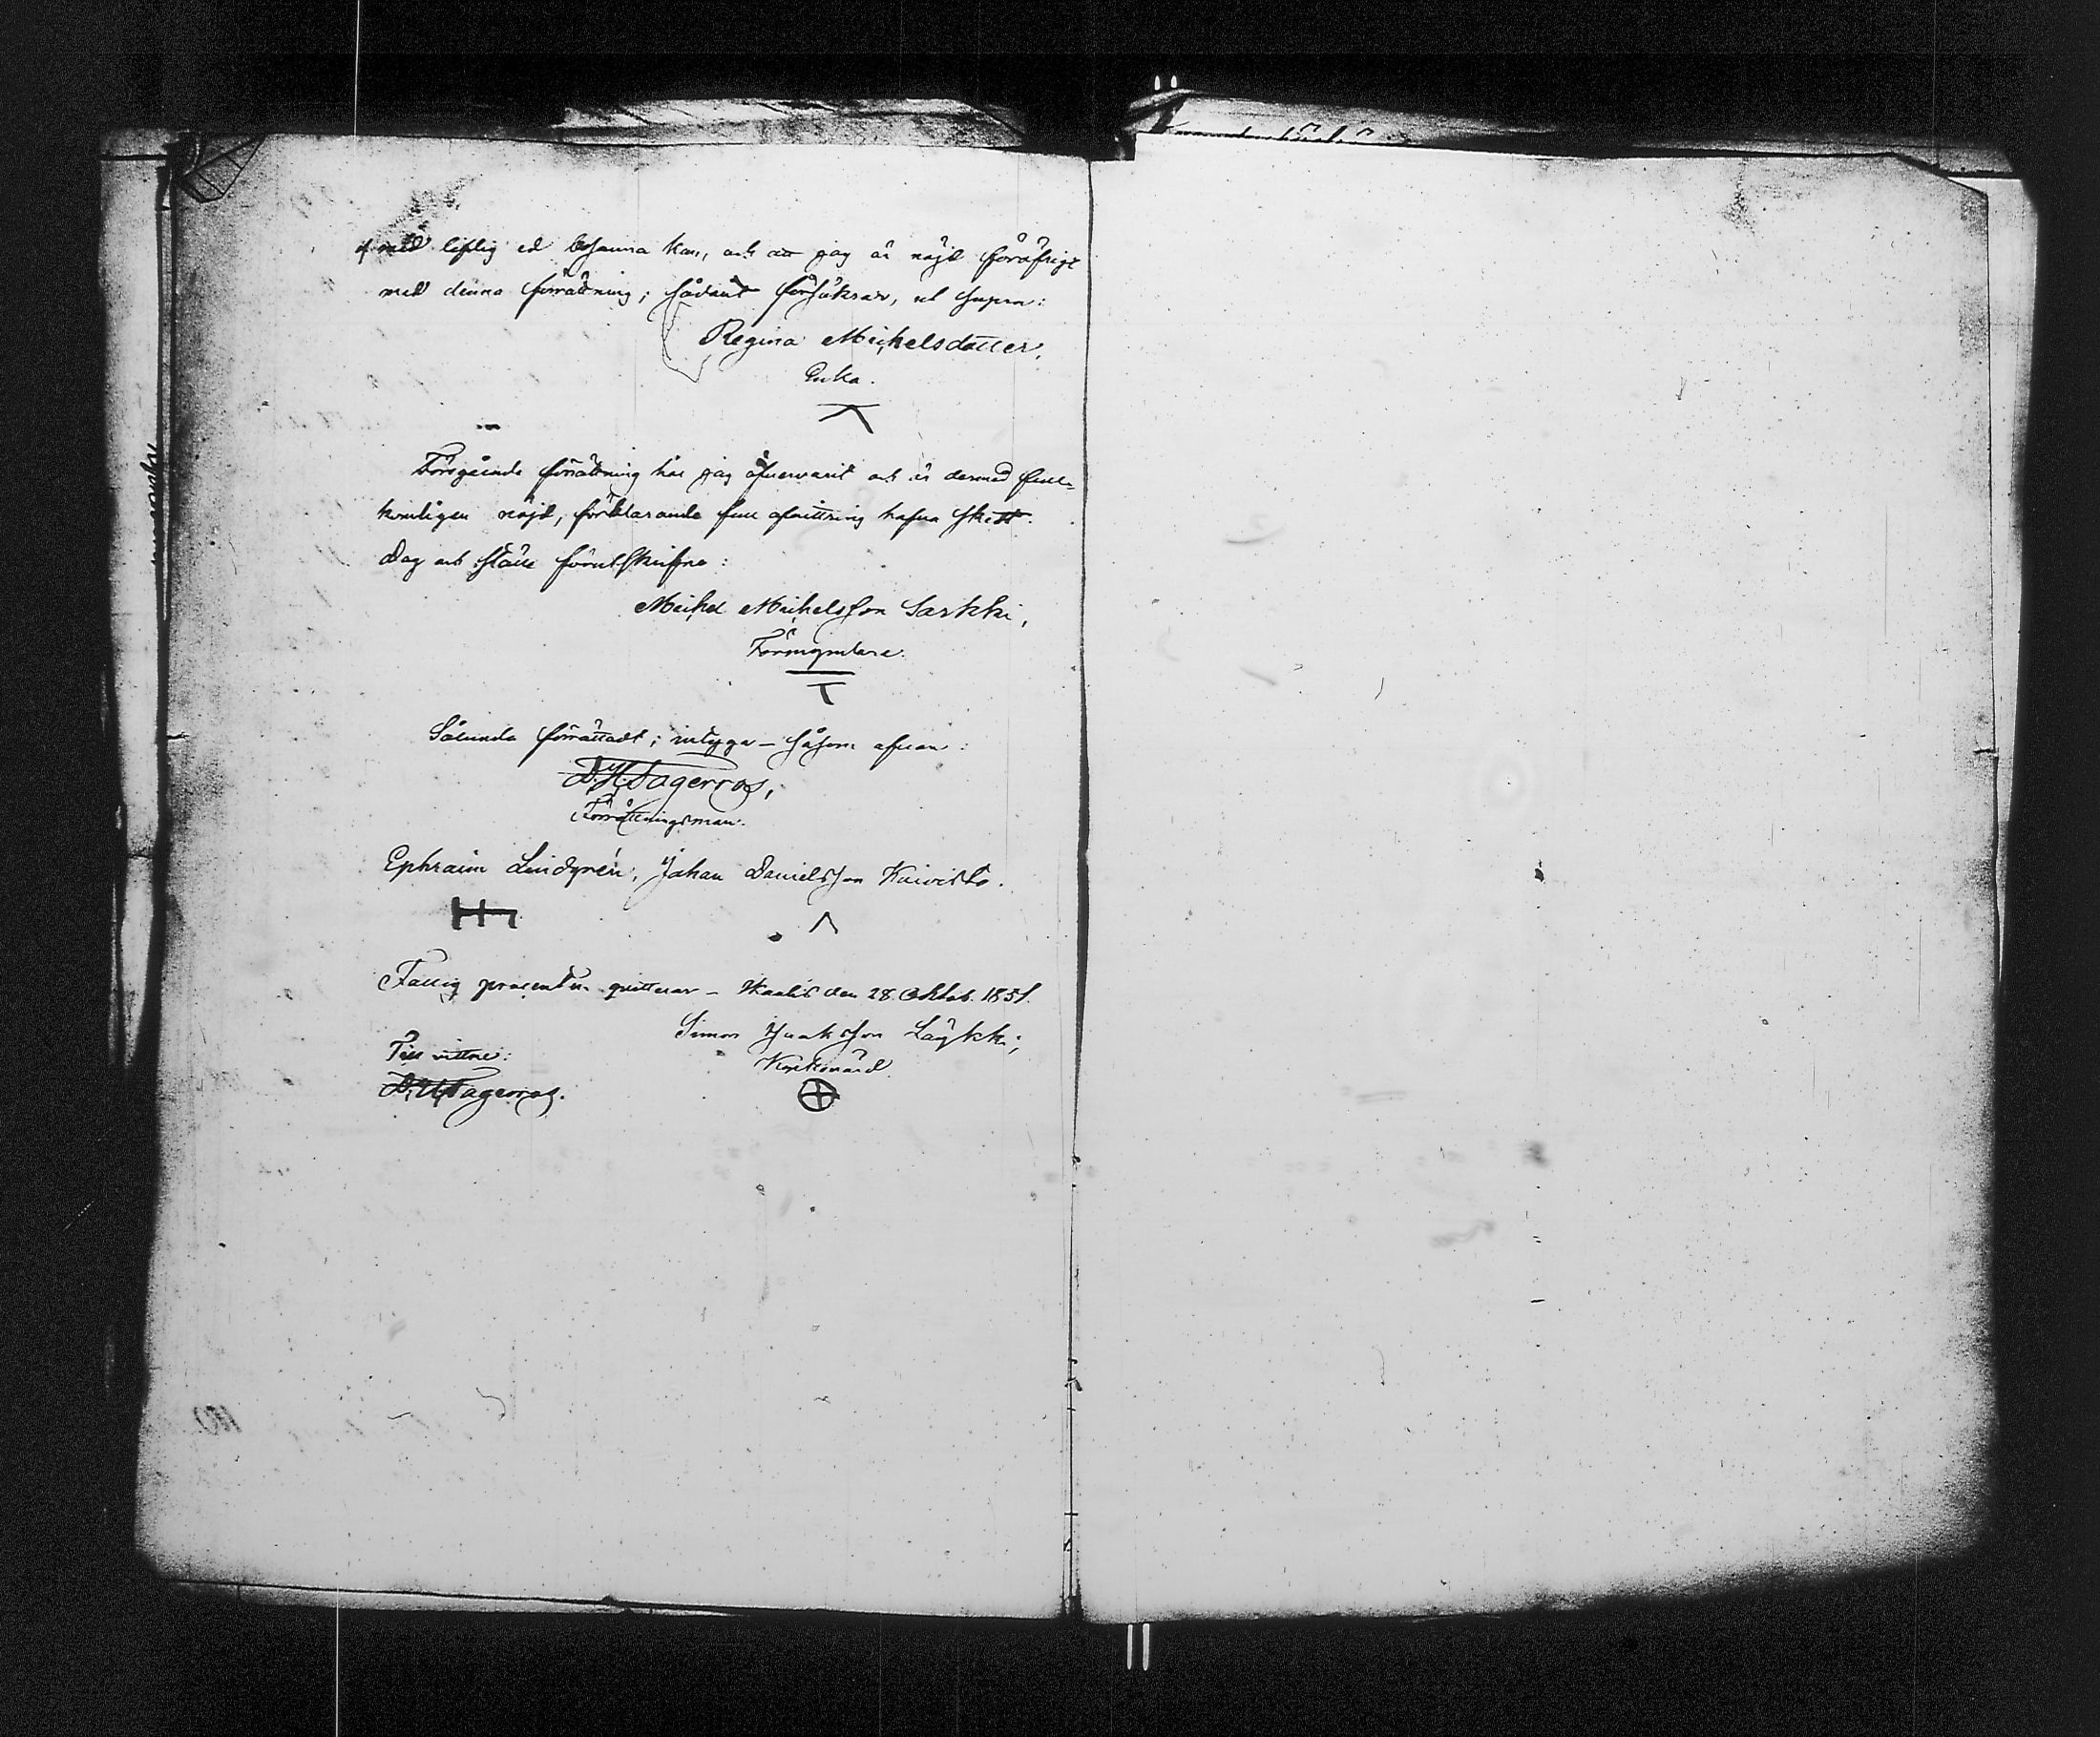 med liflig ed besanna kan, och att jag är nöjd föröfrigt
med denna förrättning; sådant försäkrar, ut supra:
Regina Michelsdotter,
Enka.
Föregående förrättning har jag öfvervarit och är dermed full-
komligen nöjd, förklarande full afvittring hafva skett.
Dag och ställe förutskrifne:
Michel Michelsson Sarkki,
Förmyndare.
Sålunda förrättadt; intyga – såsom ofvan:
D. H. Fagerroos,
Förrättningsman.
Ephraim Lindgrén, Johan Danielsson Kaivisto.
Fattig procenten quitterar – Ikaalis den 28. Oktob. 1851.
Simon Isaksson Läykki,
Kyrkovärd
Till vittne:
D. H. Fagerroos.